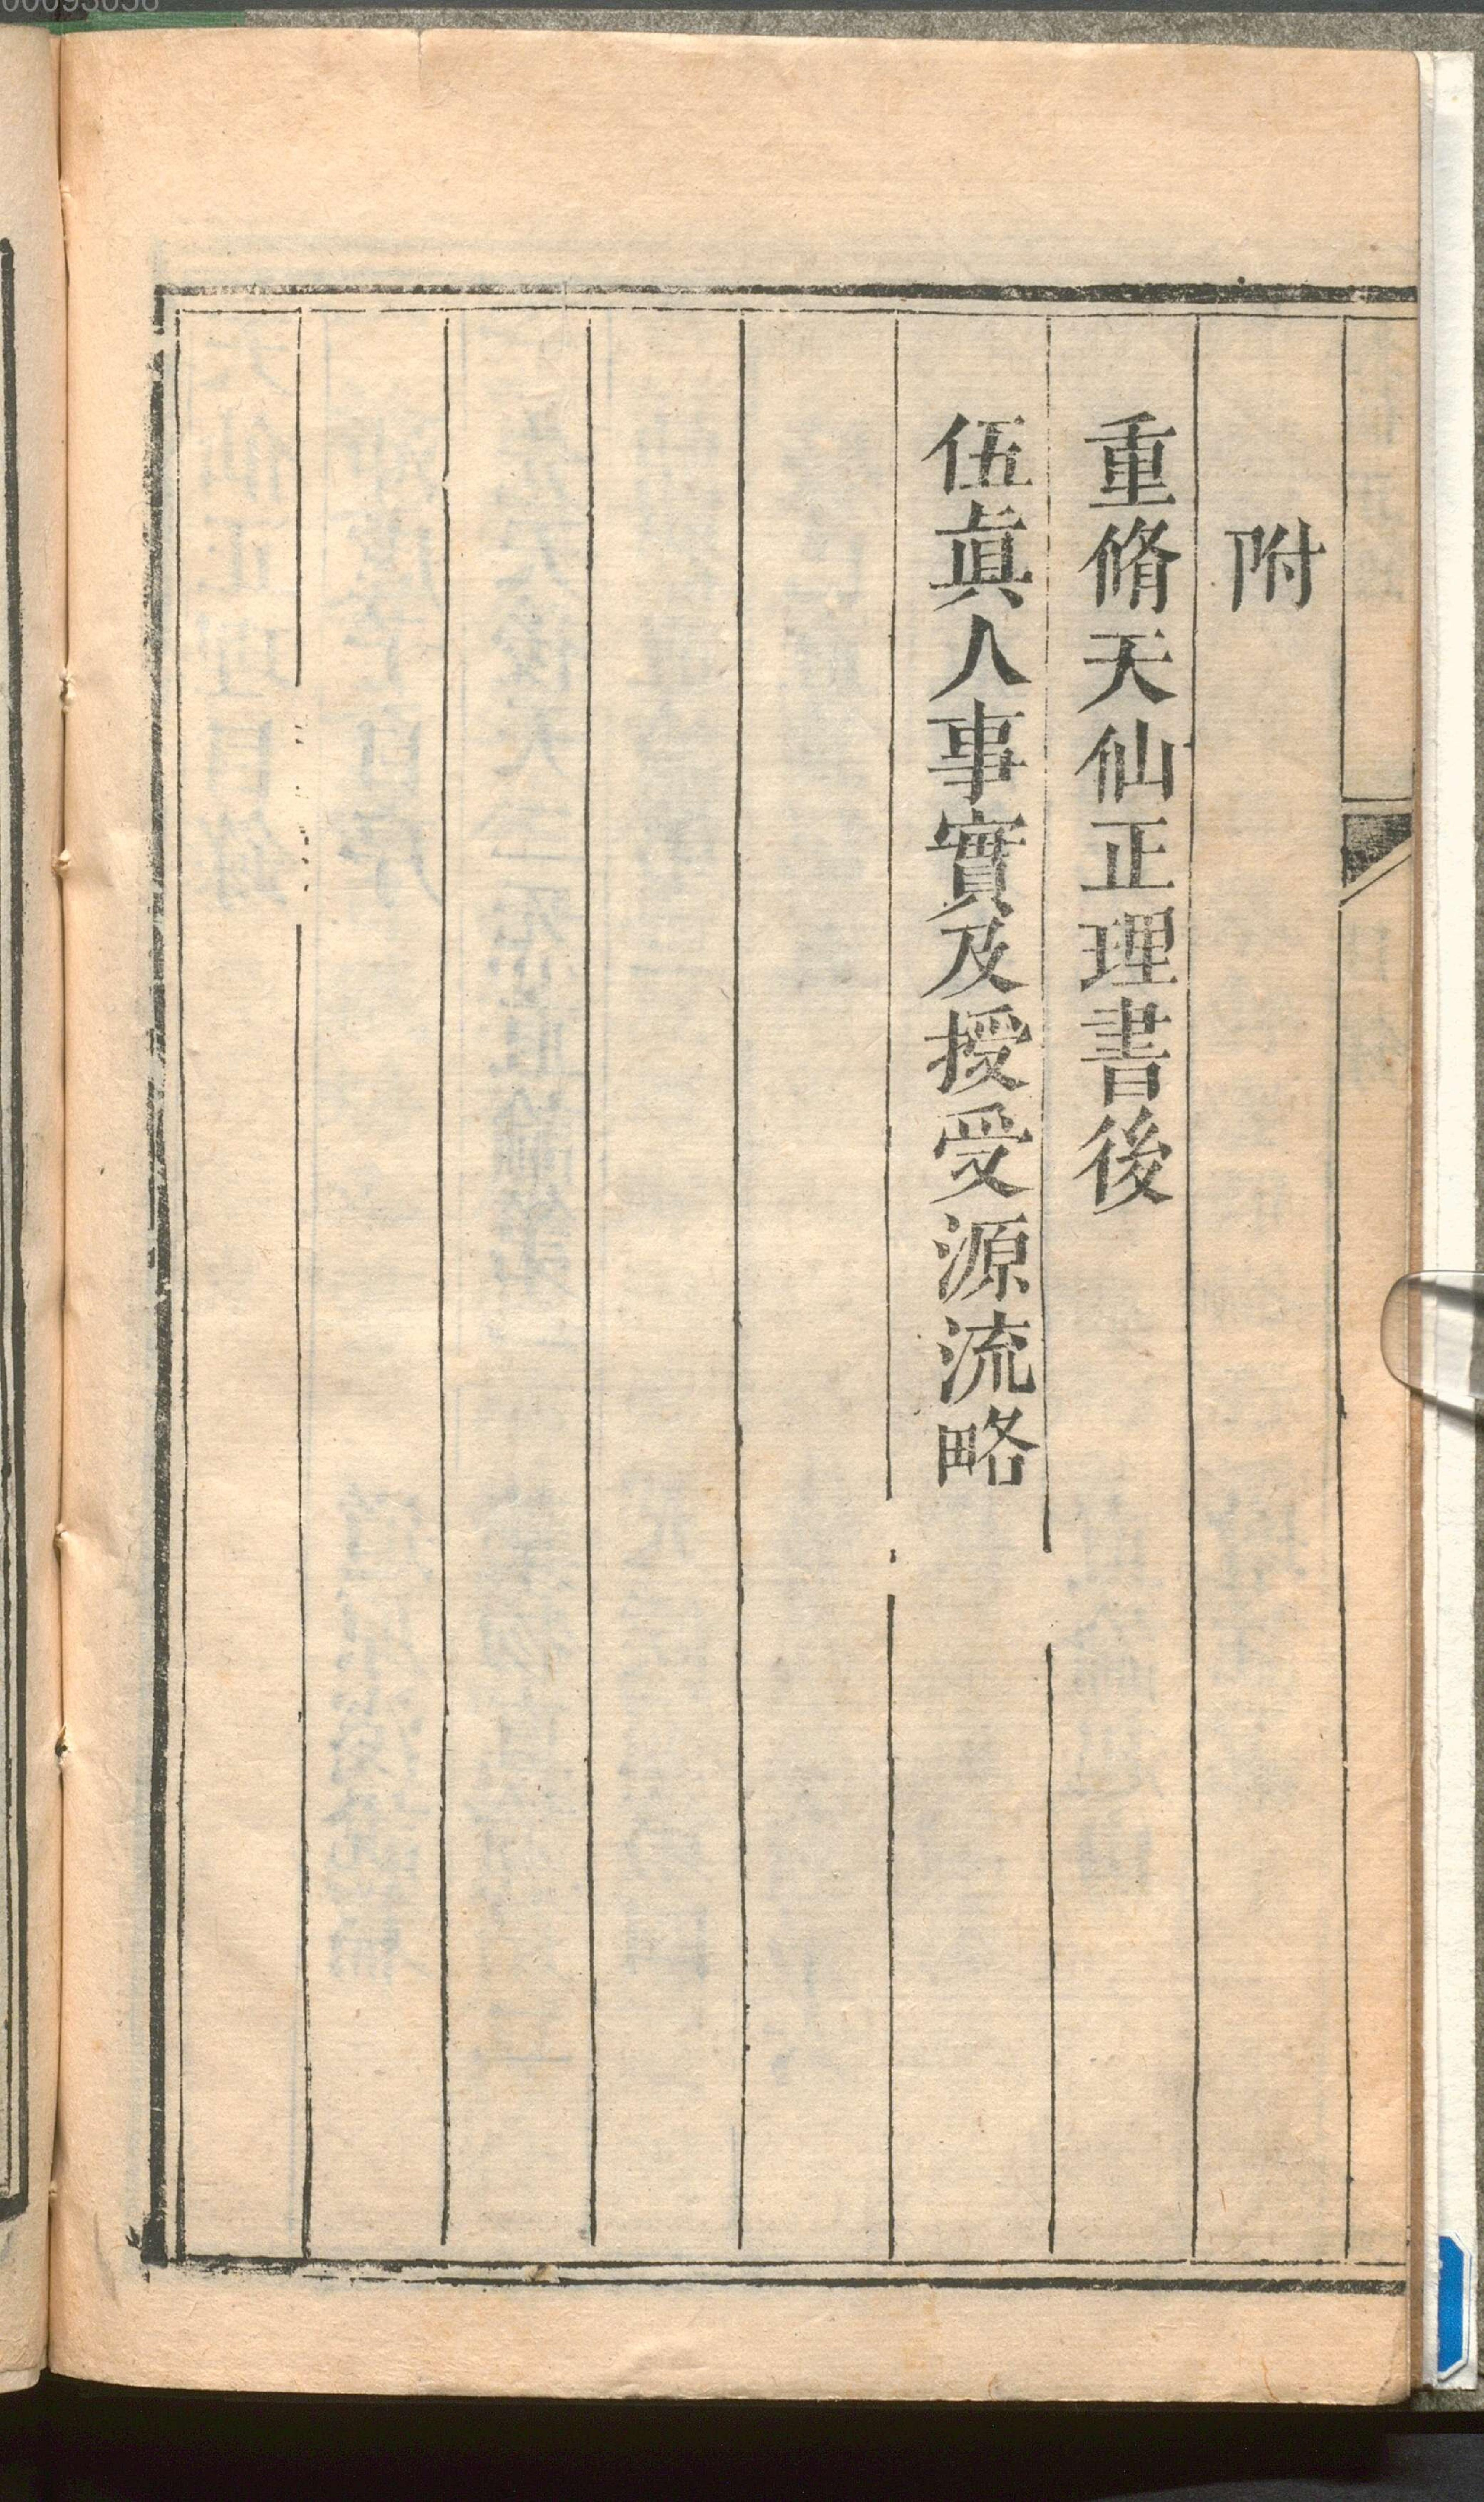 附
重脩天仙正理書後
伍眞人事實及授受源流略